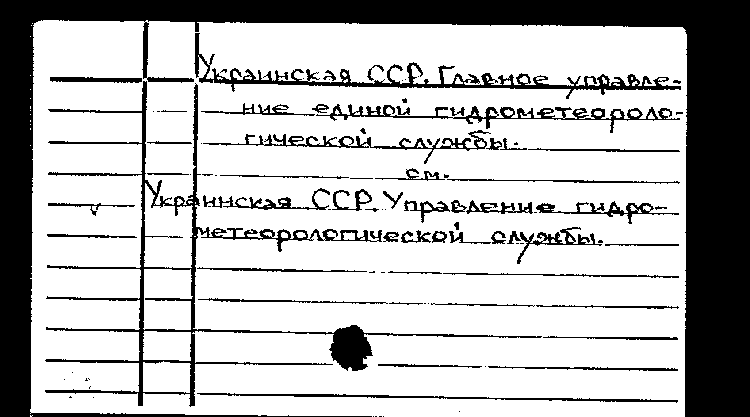 Украинская ССР. Главное управле-
ние единой гидрометеороло-
гической службы.
см.
Украинская ССР. Управление гидро-
метеорологической службы.